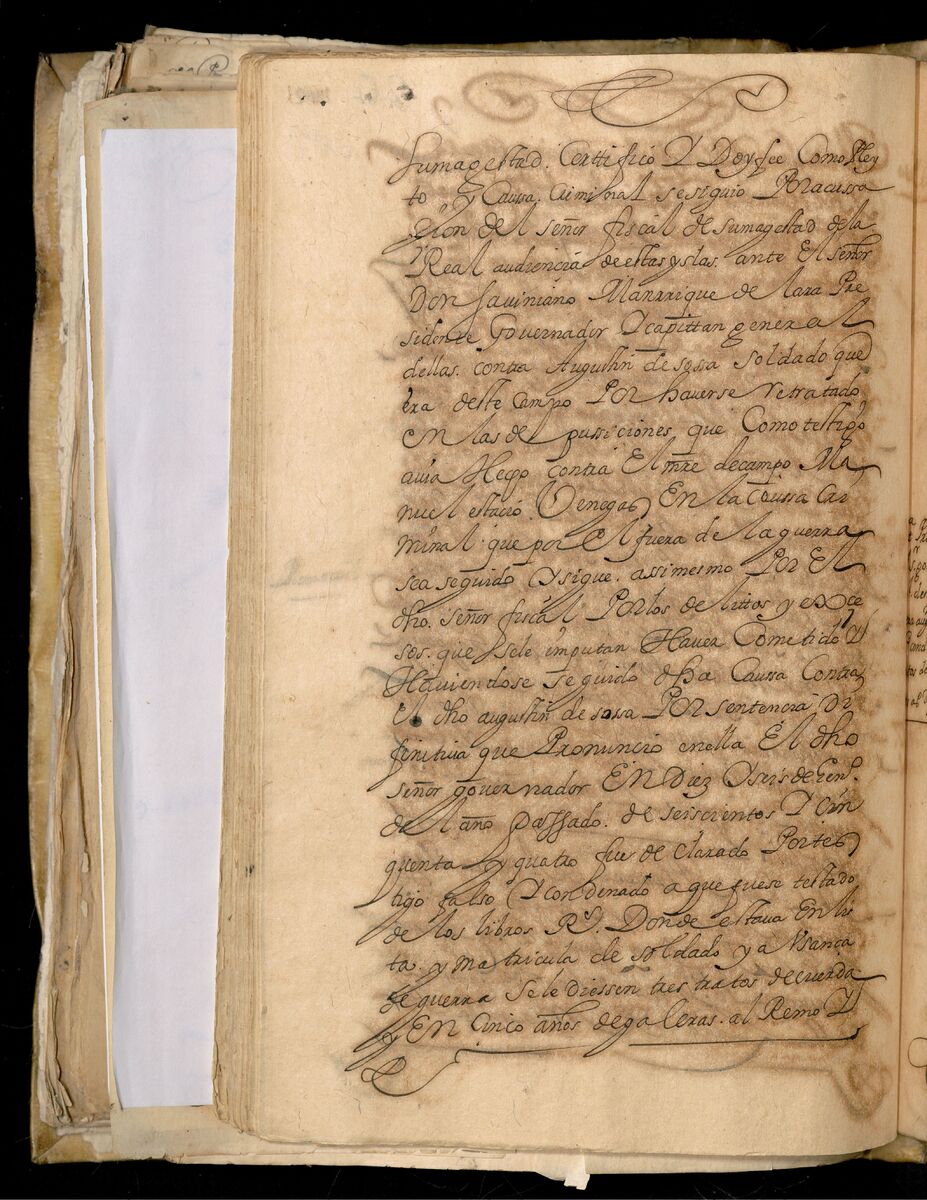 sumagestad. Certifico Y Doy fee Como Pley
to y Caussa. Criminal se siguio Por acussa
çion del señor fiscal de sumagestad de la
Real audiencia de estas yslas. ante El señor
Don Saviniano Manrrique de lara Pre
sidente Governador Y capittan general
dellas. contra Augustin de sossa soldado que
era deste Campo Por haverse retratado
en las de pussiciones que Como testigo
avia Hecho contra El mre de campo Ma
nuel estacio Venegas En la Caussa Cri
minal que por el fuera de la guerra
sea seguido Y sigue. assimesmo Por El
dho. señor fiscal Por los delittos y exçe
sos. que sele imputan Haver Cometido Y
Haviendose seguido dha Caussa Contra
El dho augustin de sossa Por sentencia Di
finitiva que Pronuncio en ella El dho
señor governador En Diez Y seis de Enº.
del año Passado. de seiscientos Y çin
quenta y quatro fue de clarado Por tes
tigo falso Y condenado a que fuese testado
de los libros Rs. Donde estava En lis
ta. y matricula de soldado y a Vsança
de guerra Sele Diessen tres tratos de cuerda
Y En Cinco años de galeras. al Remo Y